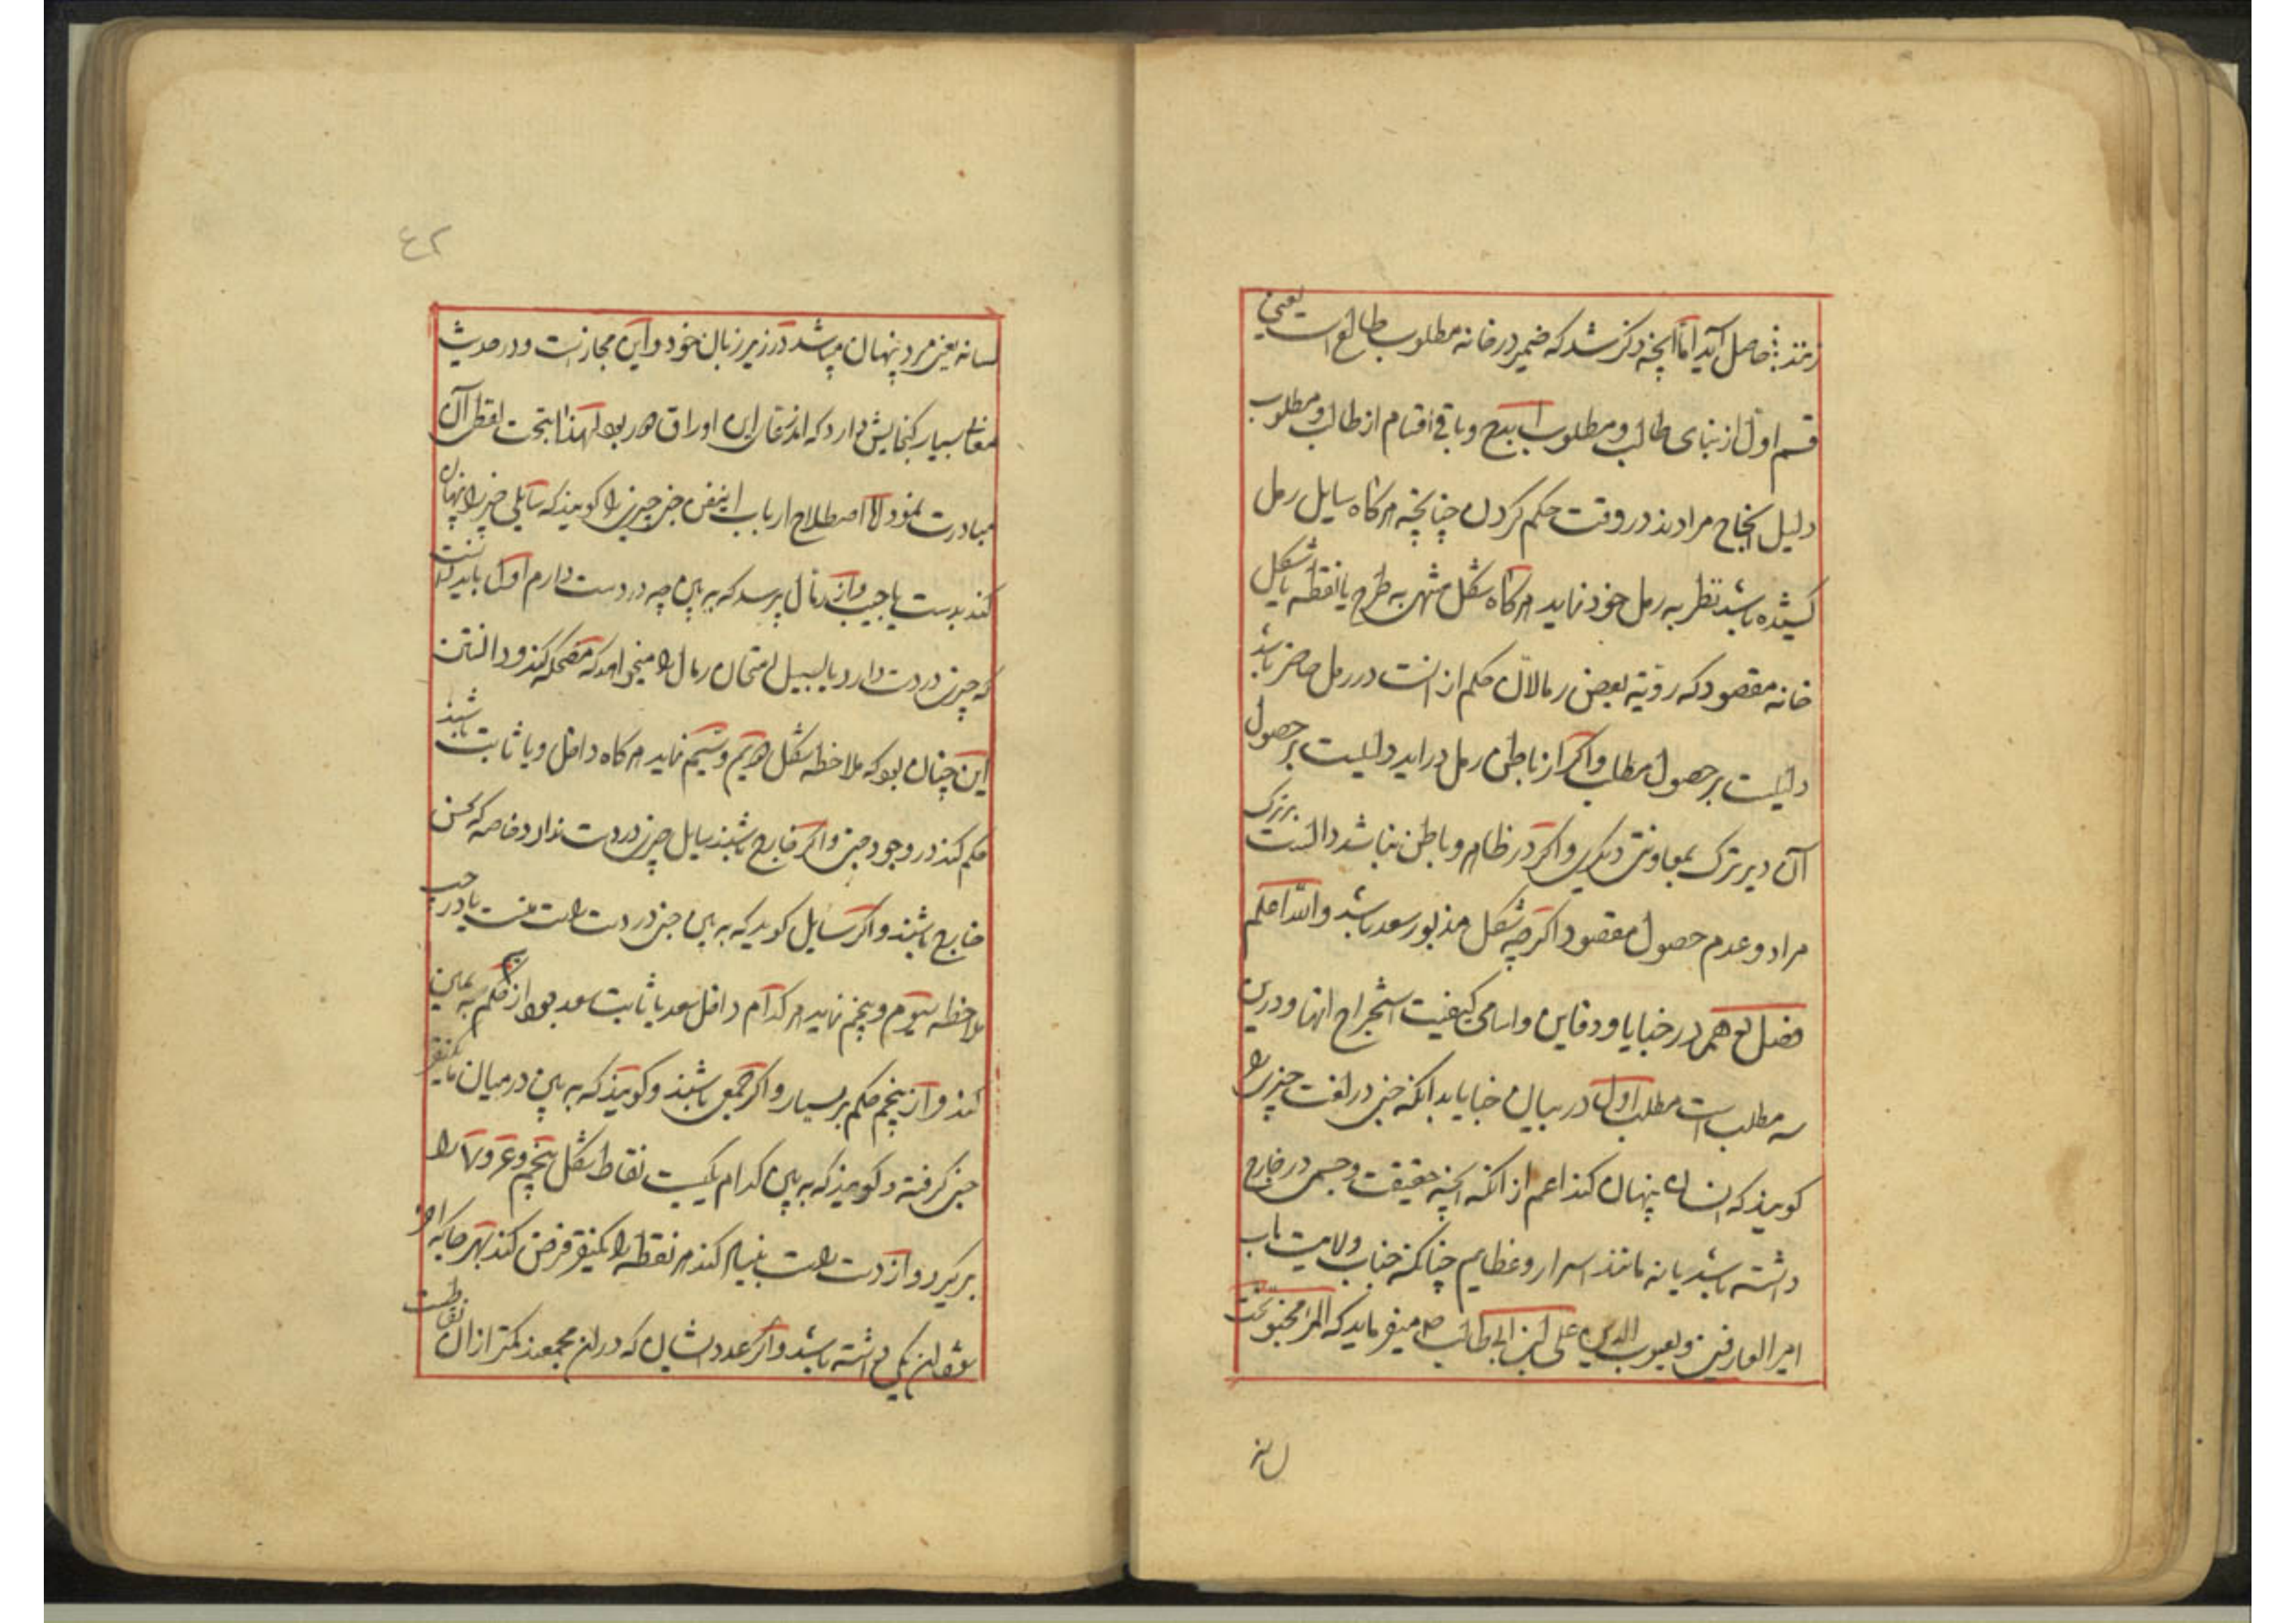 زنند حاصل آید اما آنچه ذکر شد که ضمیر در خانه مطلوب طالع است یعنی
قسم اول از بنای طالب و مطلوب ابدح و باقی اقسام از طالب و مطلوب
دلیل انجاح مرادند در وقت حکم کردن چنانچه هرگاه سایل رمل
کشیده باشد نظر به رمل خود نماید هرگاه شکل منتهی به طرح یا نقطه یا شکل
خانه مقصود که رویة بعضی رمالان حکم از آنست در رمل حاضر باشد
دلیلست بر حصول مطلب و اگر از باطن رمل دراید دلیلست بر حصول
آن دیرترک بمعاونت دیگری و اگر در ظاهر و باطن نباشد دالست بر ترک
مراد و عدم حصول مقصود اگرچه شکل مذبور سعد باشد والله اعلم
فصل در خبایا و دفاین و اسامی کیفیت استخراج انها و درین
سه مطلب است مطلب اول در بیان خبایا بدانکه خبی در لغت چیزی را
کویند که انسان پنهان کند اعم از انکه انچه حقیقت و جسمی در خارج
داشته باشد یا نه مانند اسرار و عظایم چنانکه جناب ولایت ماب
امیر العارفین و یعسوب الدین علی ابن ابی طالب ص میفرماید که المرء مخبو تحت
لسانه
۴۲
لسانه یعنی مرد پنهان میباشد در زیر زبان خود و این مجاز است و در حدیث
معانی بسیار کنجایش دارد که این اوراق لهذا بتحت لفظ آن
مبادرت ننمود اما اصطلاح ارباب این فن خبی چیزی را کویند که سایلی چیزی را پنهان
کند بدست یا جیب و از رمال پرسد که به بین چه در دست دارم اول باید دانست
که چیزی در دست دارد یا بسبیل امتحان رمال را میخواهد که مضحکه کند و دانستن
این چنان بود که ملاحظه شکل و سیم نماید هرگاه داخل و یا ثابت باشند
حکم کند در وجود خبی و اگر خارج باشند سایل چیزی در دست ندارد خاصه که نحس
خارج باشند و اگر سایل کوید که به بین خبی در دست راست منست یا در چپ
ملاحظه سیوم و پنجم نماید هر کدام داخل سعد یا ثابت سعد بود از سیم حکم به یمین
کند و از پنجم حکم بر یسار و اگر جمعی باشند و کویند که به بین در میان ما یکنفر
خبی کرفته و کویند که به بین کدام یکیست نقاط شکل پنجم و ۶ و ۷ را
برگیرد و از دست راست بنیاد کند هر نقطه را یکنفر فرض کند بهر جا که اخر
شود ان یکی داشته باشد و اگر عدد ایشان که در ان مجمعند کمتر از ان نقاطست